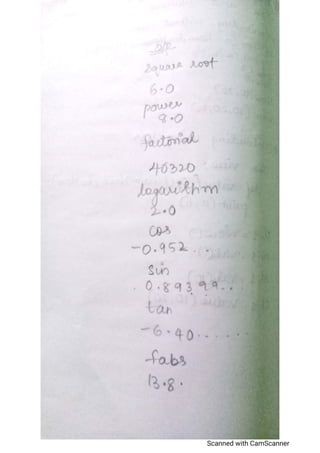 o/p
square root
6.0
power
8.0
factorial
40320
logarithm
2.0
cos
-0.952...
sin
0.89399...
tan
-6.40......
fabs
13.8.
Scanned with CamScanner